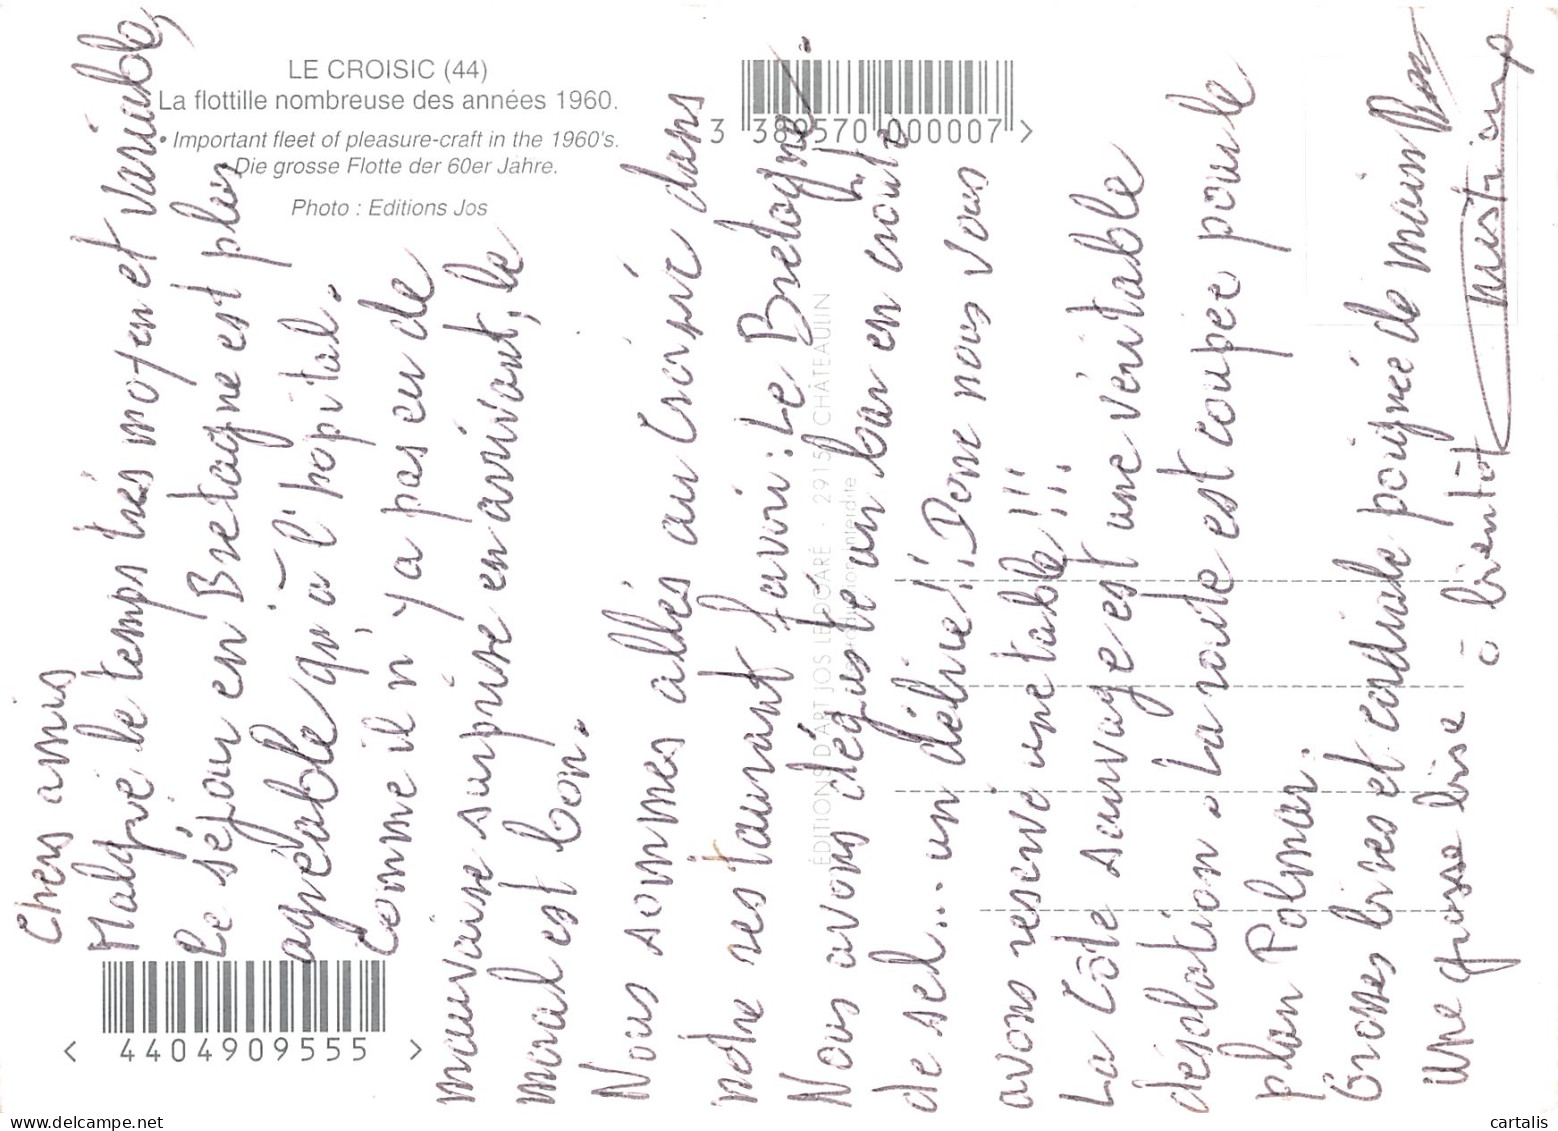 LE CROISIC (44)
La flottille nombreuse des années 1960.
Important fleet of pleasure-craft in the 1960's.
Die grosse Flotte der 60er Jahre.
Photo : Editions Jos
3 388570 000007 >
< 4404909555 >
ÉDITIONS D'ART JOS LE DOARÉ - 29150 CHÂTEAULIN
Reproduction interdite
Chers amis
Malgré le temps très moyen et variable,
le séjour en Bretagne est plus
agréable qu'à l'hopital.
Comme il n'y a pas eu de
mauvaise surprise en arrivant, le
moral est bon.
Nous sommes allés au Croisic dans
notre restaurant favori : Le Bretagne.
Nous avons dégusté un bar en croute
de sel... un délice!! Donc nous vous
avons réservé une table!!!
La Côte sauvage est une véritable
désolation. La route est coupée pour le
plan Polmar.
Grosses bises et cordiale poignée de main
Une grosse bise à bientôt
Christiane
cartalis
delcampe.net